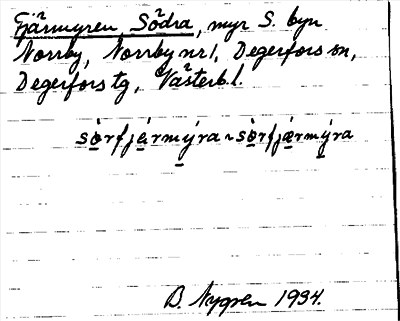 Fjärmyren Södra, myr S. byn
Norrby, Norrby nr 1, Degerfors sn,
Degerfors tg, Västerb. l.
sòrfjạ́rmýra ~ sòrfjǽrmýra
B. Nygren 1934.